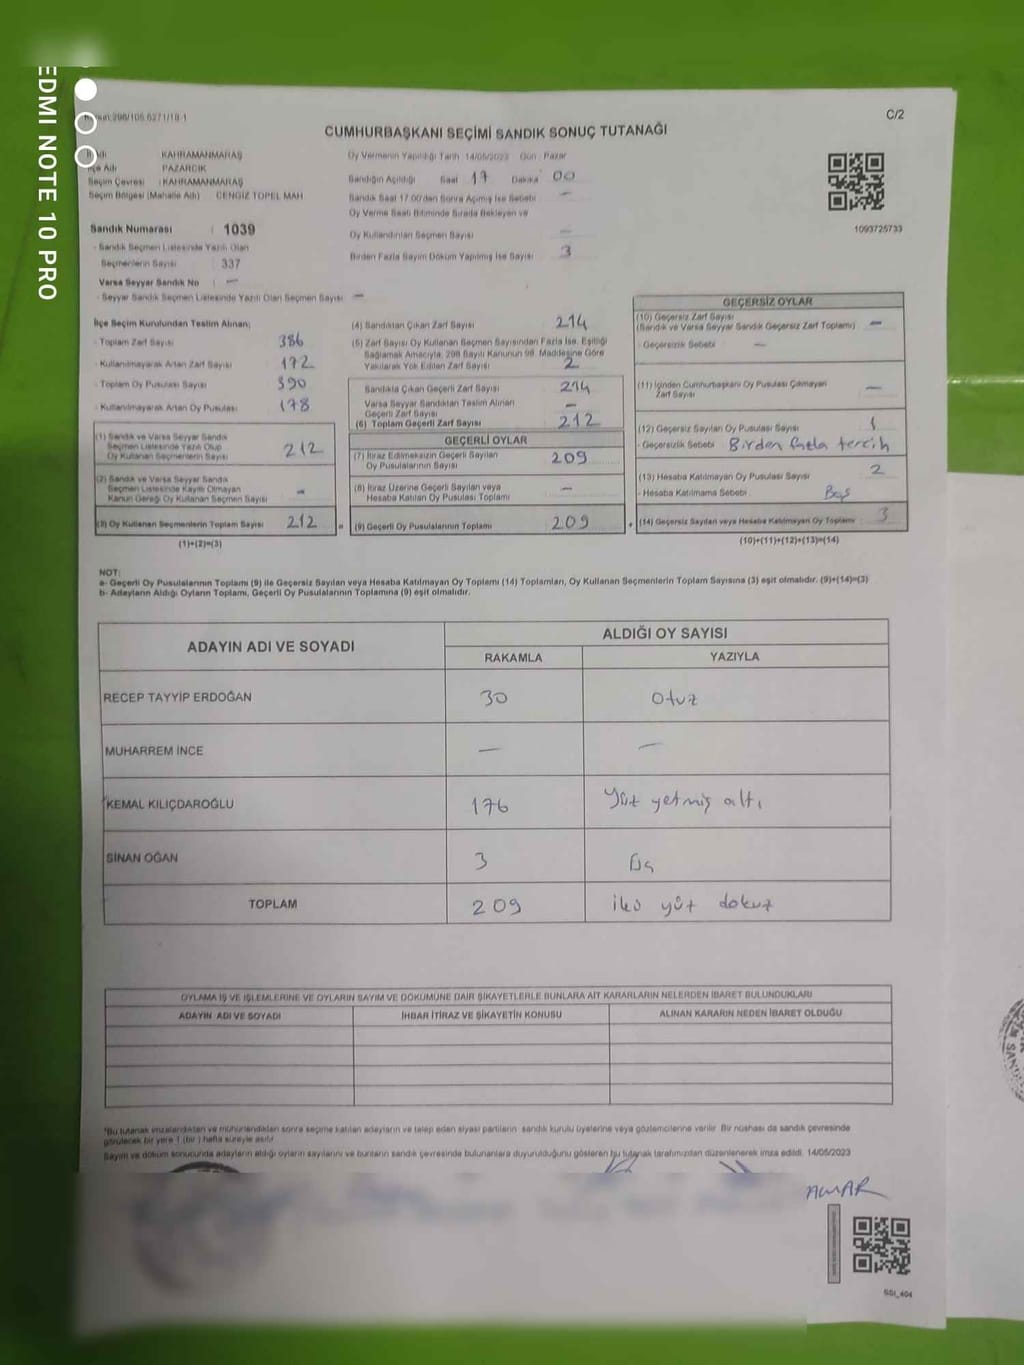 REDMI NOTE 10 PRO
C/2
CUMHURBAŞKANI SEÇİMİ SANDIK SONUÇ TUTANAĞI
KAHRAMANMARAŞ
İlçe Adı PAZARCIK
Seçim Çevresi : KAHRAMANMARAŞ
Seçim Bölgesi (Mahalle Adı) CENGİZ TOPEL MAH
Oy Vermenin Yapıldığı Tarih 14/05/2023 Gün : Pazar
Sandığın Açıldığı Saat 17 Dakika 00
Sandık Saat 17.00'den Sonra Açılmış İse Sebebi —
Oy Verme Saati Bitiminde Sırada Bekleyen ve
Oy Kullandırılan Seçmen Sayısı —
Birden Fazla Sayım Döküm Yapılmış İse Sayısı 3
1093725733
Sandık Numarası : 1039
- Sandık Seçmen Listesinde Yazılı Olan
Seçmenlerin Sayısı : 337
Varsa Seyyar Sandık No : —
- Seyyar Sandık Seçmen Listesinde Yazılı Olan Seçmen Sayısı —
İlçe Seçim Kurulundan Teslim Alınan;
- Toplam Zarf Sayısı 386
- Kullanılmayarak Artan Zarf Sayısı 172
- Toplam Oy Pusulası Sayısı 390
- Kullanılmayarak Artan Oy Pusulası 178
(1) Sandık ve Varsa Seyyar Sandık
Seçmen Listesinde Yazılı Olup
Oy Kullanan Seçmenlerin Sayısı 212
(2) Sandık ve Varsa Seyyar Sandık
Seçmen Listesinde Kayıtlı Olmayan
Kanun Gereği Oy Kullanan Seçmen Sayısı -
(3) Oy Kullanan Seçmenlerin Toplam Sayısı 212 =
(1)+(2)=(3)
(4) Sandıktan Çıkan Zarf Sayısı 214
(5) Zarf Sayısı Oy Kullanan Seçmen Sayısından Fazla İse, Eşitliği
Sağlamak Amacıyla, 298 Sayılı Kanunun 98. Maddesine Göre
Yakılarak Yok Edilen Zarf Sayısı 2
Sandıkta Çıkan Geçerli Zarf Sayısı 214
Varsa Seyyar Sandıktan Teslim Alınan
Geçerli Zarf Sayısı —
(6) Toplam Geçerli Zarf Sayısı 212
GEÇERLİ OYLAR
(7) İtiraz Edilmeksizin Geçerli Sayılan
Oy Pusulalarının Sayısı 209
(8) İtiraz Üzerine Geçerli Sayılan veya
Hesaba Katılan Oy Pusulası Toplamı —
(9) Geçerli Oy Pusulalarının Toplamı 209 +
GEÇERSİZ OYLAR
(10) Geçersiz Zarf Sayısı
(Sandık ve Varsa Seyyar Sandık Geçersiz Zarf Toplamı) —
- Geçersizlik Sebebi —
(11) İçinden Cumhurbaşkanı Oy Pusulası Çıkmayan
Zarf Sayısı —
(12) Geçersiz Sayılan Oy Pusulası Sayısı 1
- Geçersizlik Sebebi Birden fazla tercih
(13) Hesaba Katılmayan Oy Pusulası Sayısı 2
- Hesaba Katılmama Sebebi Boş
(14) Geçersiz Sayılan veya Hesaba Katılmayan Oy Toplamı 3
(10)+(11)+(12)+(13)=(14)
NOT:
a- Geçerli Oy Pusulalarının Toplamı (9) ile Geçersiz Sayılan veya Hesaba Katılmayan Oy Toplamı (14) Toplamları, Oy Kullanan Seçmenlerin Toplam Sayısına (3) eşit olmalıdır. (9)+(14)=(3)
b- Adayların Aldığı Oyların Toplamı, Geçerli Oy Pusulalarının Toplamına (9) eşit olmalıdır.
ADAYIN ADI VE SOYADI
ALDIĞI OY SAYISI
RAKAMLA YAZIYLA
RECEP TAYYİP ERDOĞAN 30 Otuz
MUHARREM İNCE — —
KEMAL KILIÇDAROĞLU 176 Yüz yetmiş altı
SİNAN OĞAN 3 Üç
TOPLAM 209 iki yüz dokuz
OYLAMA İŞ VE İŞLEMLERİNE VE OYLARIN SAYIM VE DÖKÜMÜNE DAİR ŞİKAYETLERLE BUNLARA AİT KARARLARIN NELERDEN İBARET BULUNDUKLARI
ADAYIN ADI VE SOYADI İHBAR İTİRAZ VE ŞİKAYETİN KONUSU ALINAN KARARIN NEDEN İBARET OLDUĞU
*Bu tutanak imzalandıktan ve mühürlendikten sonra seçime katılan adayların ve talep eden siyasi partilerin sandık kurulu üyelerine veya gözlemcilerine verilir. Bir nüshası da sandık çevresinde
görülecek bir yere 1 (bir) hafta süreyle asılır.
Sayım ve döküm sonucunda adayların aldığı oyların sayılarını ve bunların sandık çevresinde bulunanlara duyurulduğunu gösteren bu tutanak tarafımızdan düzenlenerek imza edildi. 14/05/2023